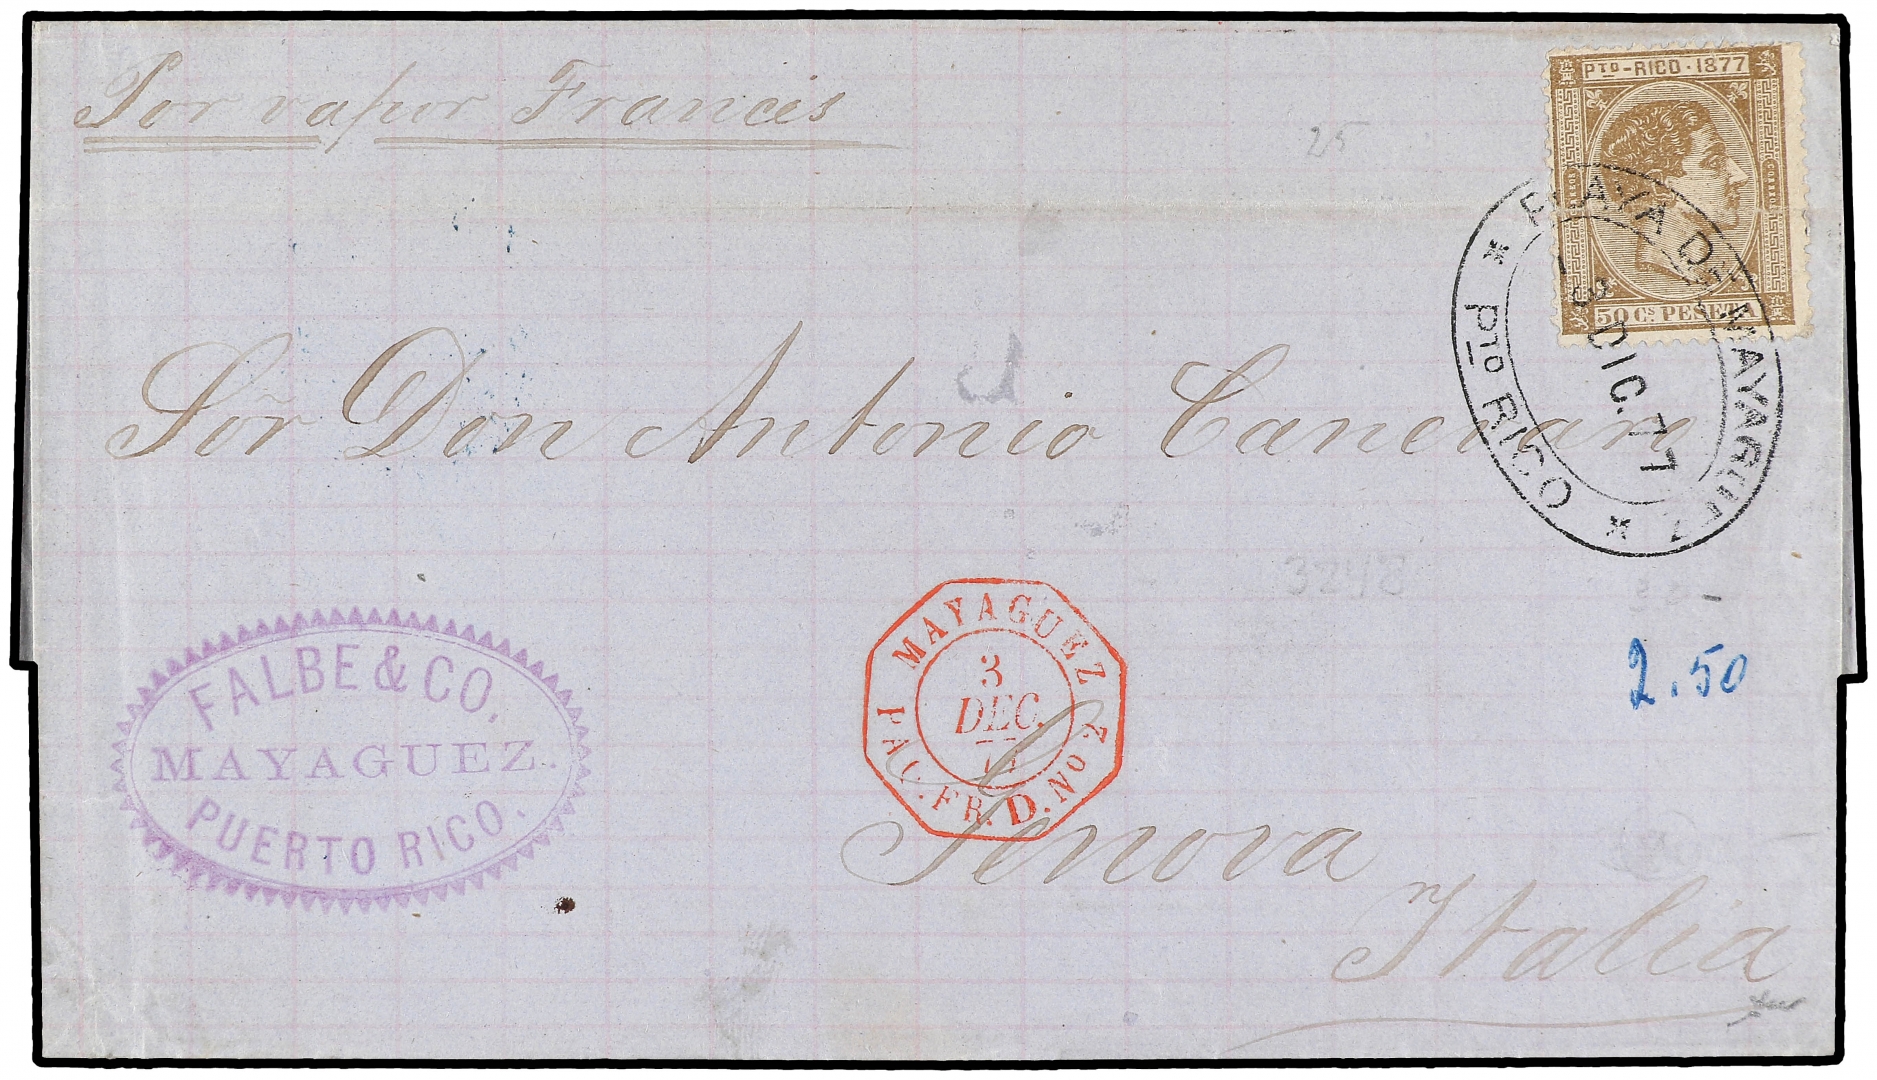 Por vapor Frances
25
PTO-RICO·1877
50 Cs PESETA
* PLAYA DE MAYAGUEZ *
PTO RICO
3 DIC. 77
Sõr Don Antonio
3248
2.50
MAYAGUEZ
3
DEC.
PAQ. FR. D. No 2
FALBE & CO.
MAYAGUEZ.
PUERTO RICO.
Genova
Italia